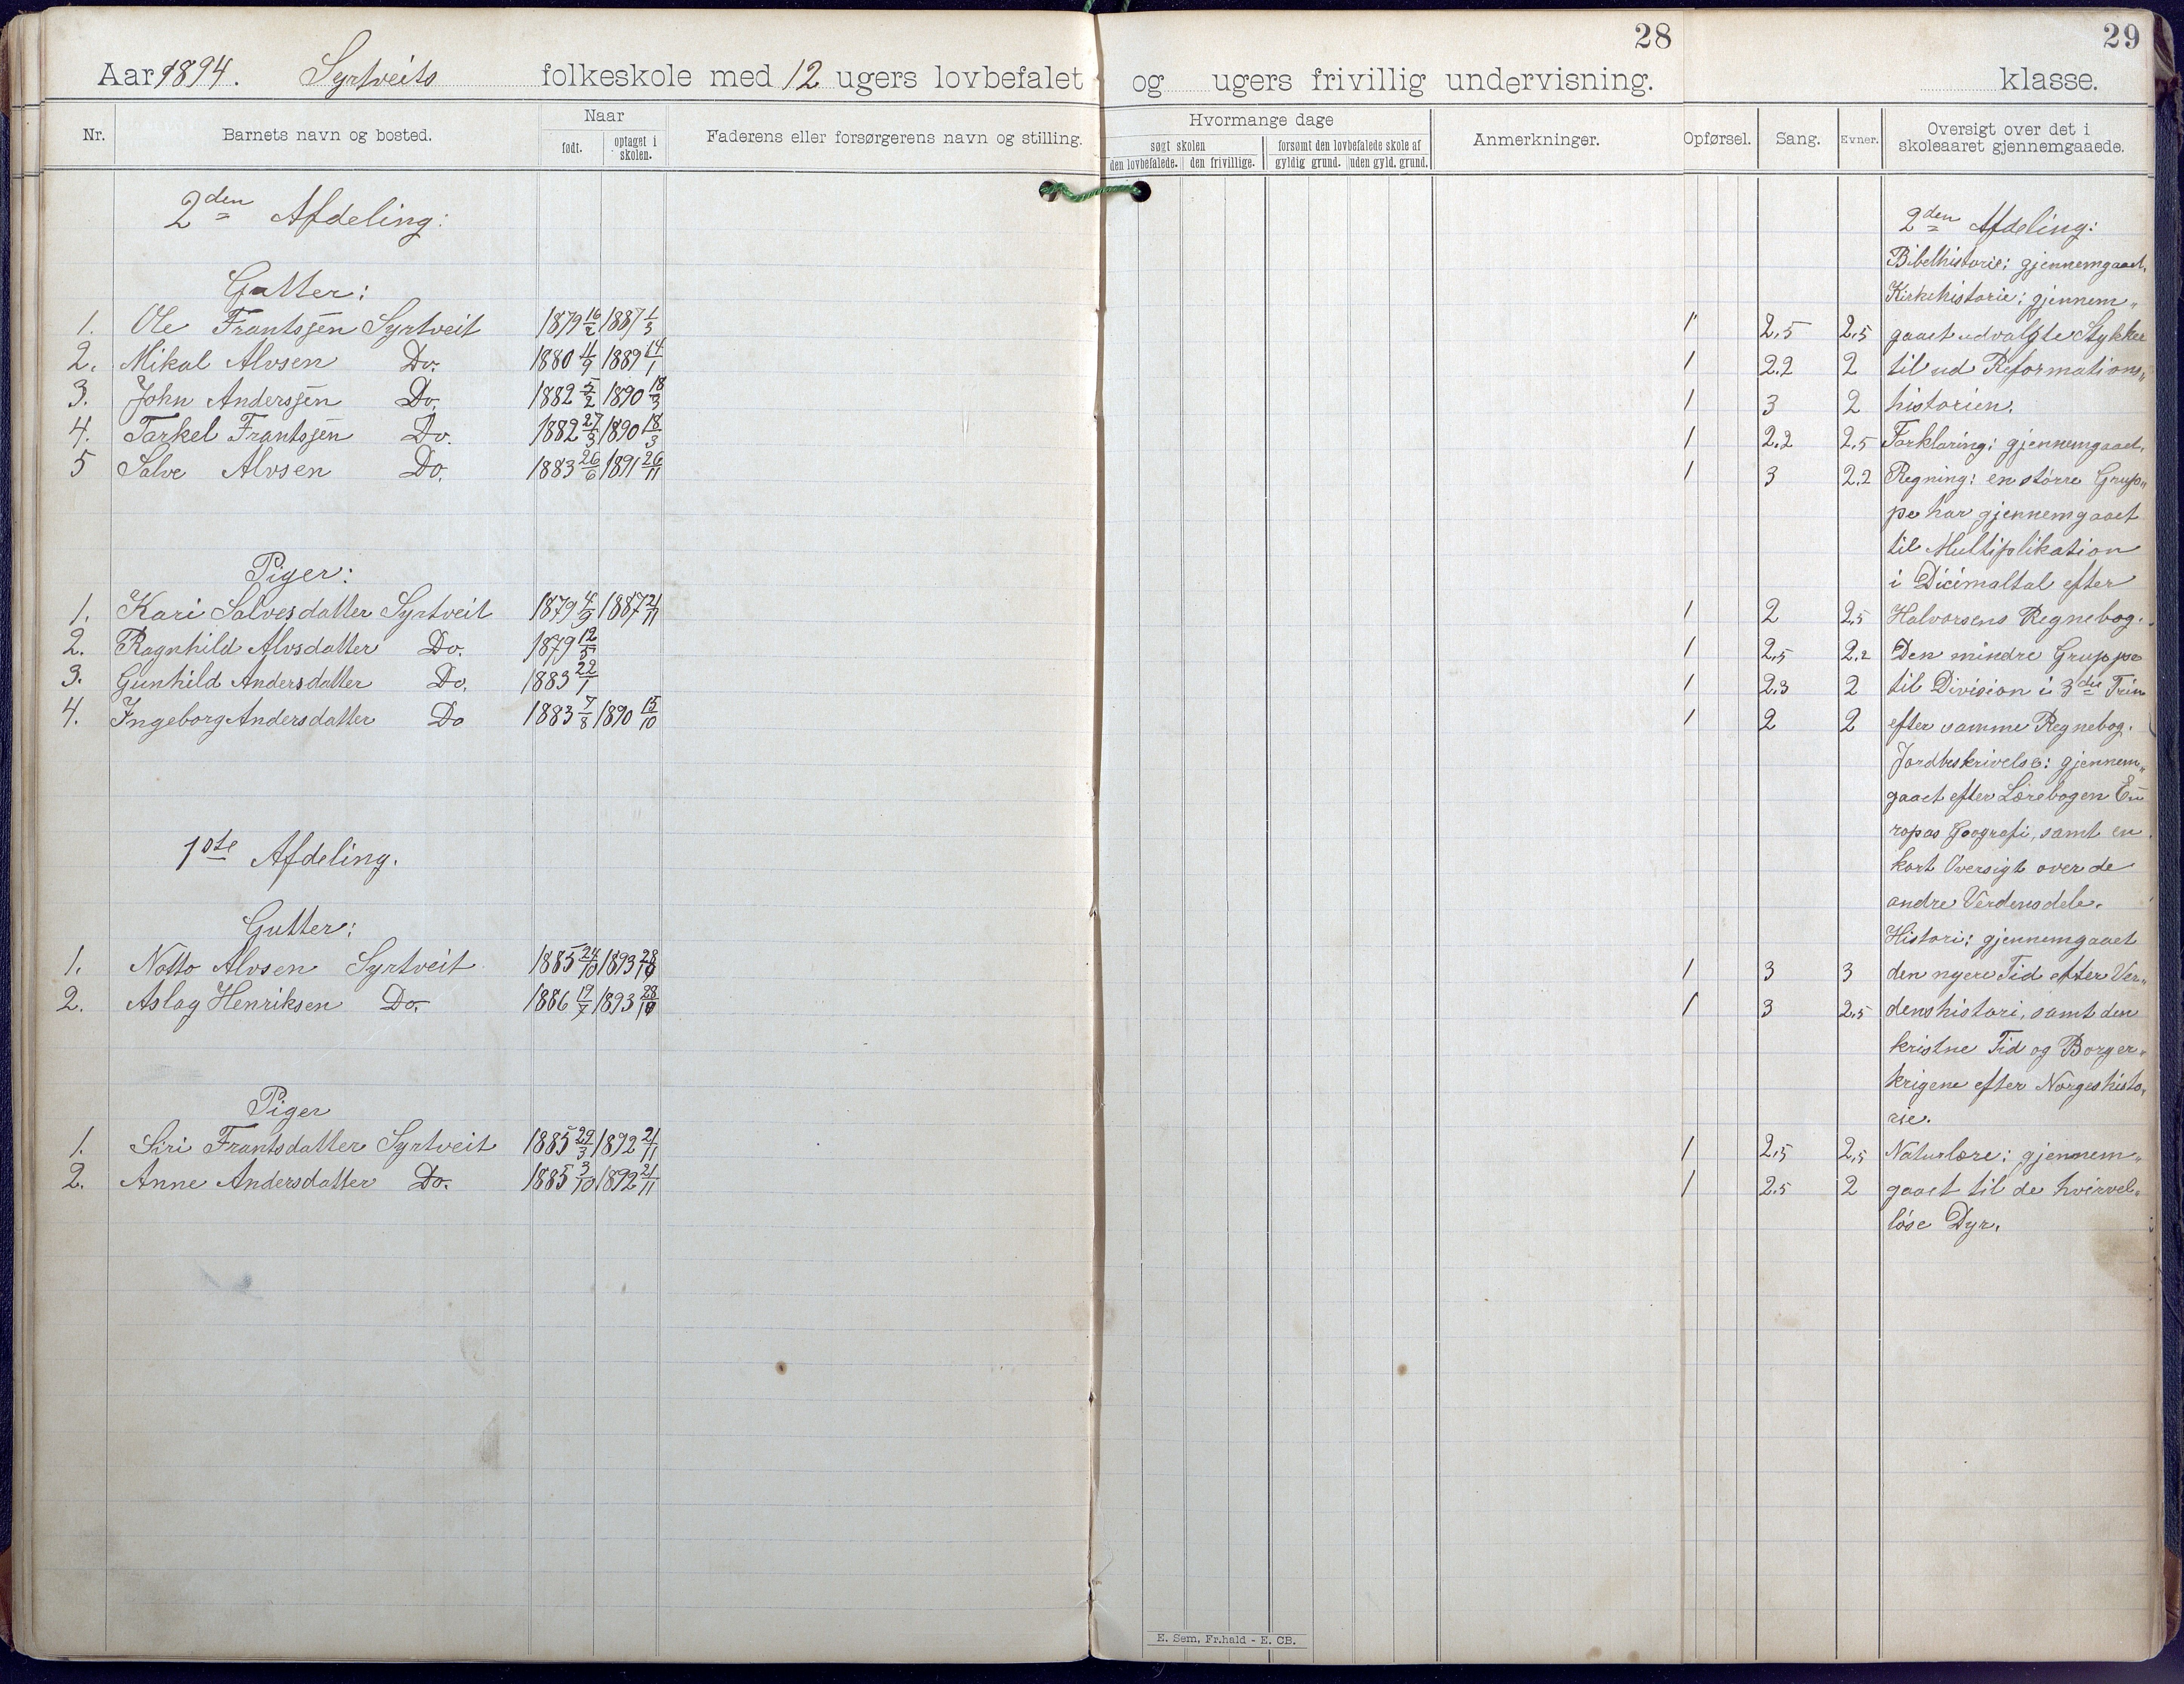 28
29
Aar 1894. Syrtveits folkeskole med 12 ugers lovbefalet og ugers frivillig undervisning. klasse.
Nr. Barnets navn og bosted. Naar født. optaget i skolen. Faderens eller forsørgerens navn og stilling. Hvormange dage søgt skolen den lovbefalede. den frivillige. forsømt den lovbefalede skole af gyldig grund. uden gyld. grund. Anmerkninger. Opførsel. Sang. Evner. Oversigt over det i skoleaaret gjennemgaaede.
2den Afdeling:
Gutter:
1. Ole Frantsjen Syrtveit 1879 16/2 1887 1/3 1 2,5 2,5
2. Mikal Alvsen Do. 1880 4/9 1889 14/1 1 2.2 2
3. John Andersjen Do. 1882 5/2 1890 18/3 1 3 2
4. Tarkel Frantsjen Do. 1882 27/3 1890 18/3 1 2.2 2,5
5 Salve Alvsen Do. 1883 26/6 1891 26/11 1 3 2.2
Piger:
1. Kari Salvesdatter Syrtveit 1879 4/9 1887 21/11 1 2 2,5
2. Ragnhild Alvsdatter Do. 1879 12/5 1 2,5 2.2
3. Gunhild Andersdatter Do. 1883 22/1 1 2.3 2
4. Ingeborg Andersdatter Do 1883 7/8 1890 15/10 1 2 2
1ste Afdeling.
Gutter:
1. Notto Alvsen Syrtveit 1885 24/10 1893 28/10 1 3 3
2. Aslag Henriksen Do. 1886 19/7 1893 28/10 1 3 2,5
Piger
1. Siri Frantsdatter Syrtveit 1885 29/3 1892 21/11 1 2,5 2,5
2. Anne Andersdatter Do. 1885 3/10 1892 21/11 1 2.5 2
2den Afdeling:
Bibelhistorie: gjennemgaaet.
Kirkehistorie: gjennem„
gaaet udvalgte Stykker
til ud Reformations„
historien.
Forklaring: gjennemgaaet.
Regning: en større Grup„
pe har gjennemgaaet
til Multiplikation
i Dicimaltal efter
Halvorsens Regnebog.
Den mindre Gruppe
til Division i 3die Trin
efter samme Regnebog.
Jordbeskrivelse: gjennem„
gaaet efter Lærebogen Eu
ropas Geografi, samt en
kort Oversigt over de
andre Verdensdele.
Histori: gjennemgaaet
den nyere Tid efter Ver„
denshistori, samt den
kristne Tid og Borger„
krigene efter Norgeshisto„
rie.
Naturlære: gjennem„
gaaet til de hvirvel„
løse Dyr.
E. Sem, Fr.hald - E. CB.